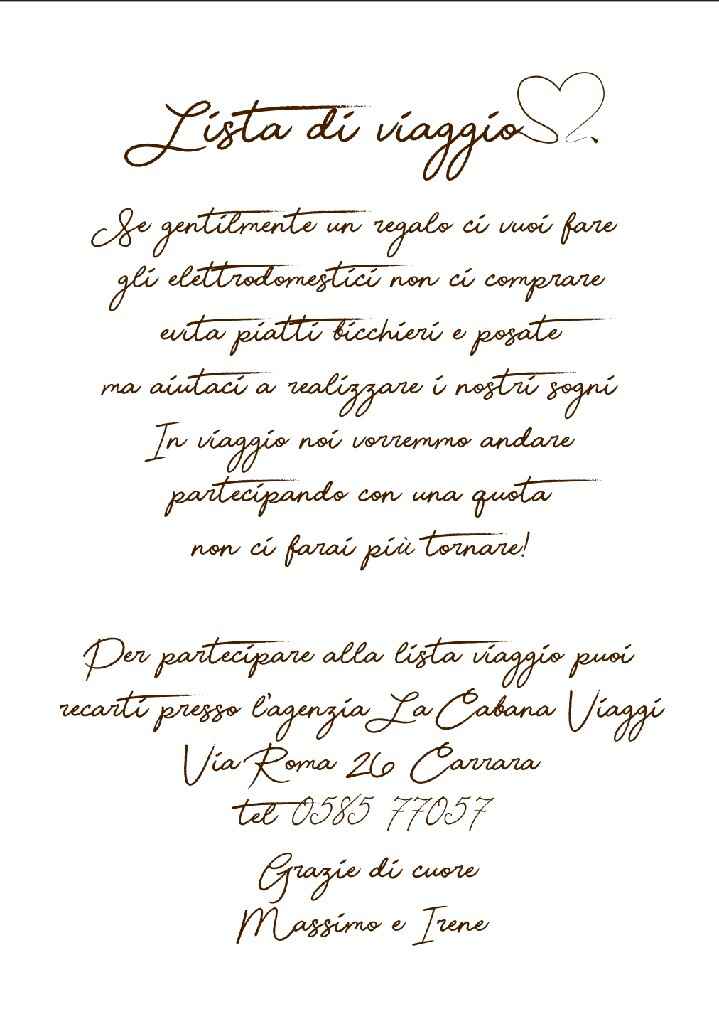 Lista di viaggio
Se gentilmente un regalo ci vuoi fare
gli elettrodomestici non ci comprare
evita piatti bicchieri e posate
ma aiutaci a realizzare i nostri sogni
In viaggio noi vorremmo andare
partecipando con una quota
non ci farai più tornare!
Per partecipare alla lista viaggio puoi
recarti presso l'agenzia La Cabana Viaggi
Via Roma 26 Carrara
tel 0585 77057
Grazie di cuore
Massimo e Irene